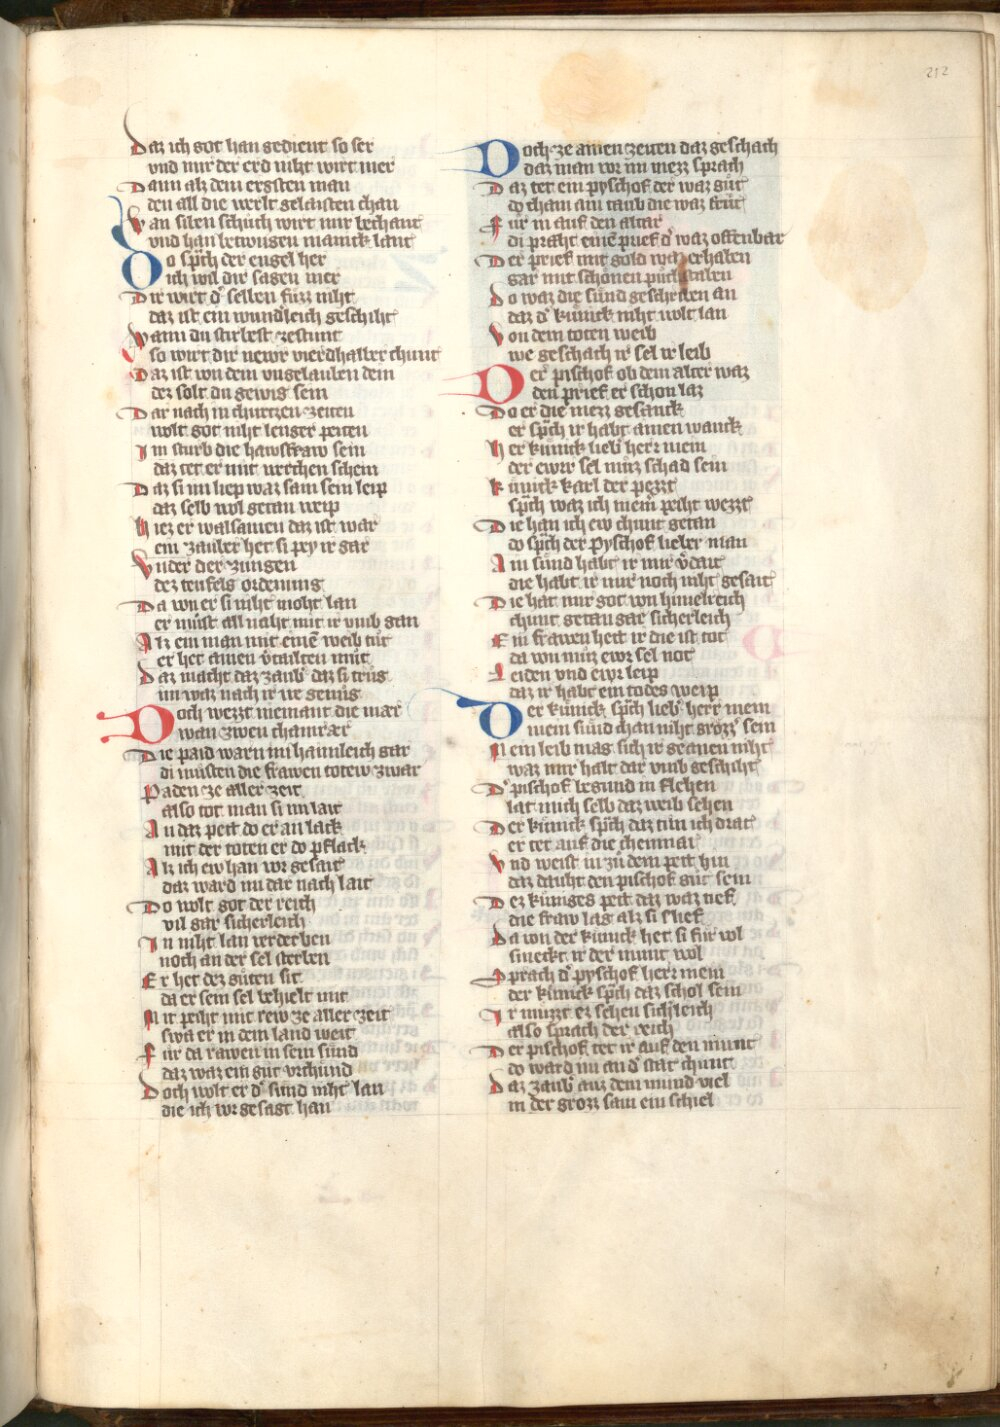 212
Daz ich got han gedient so ser
vnd mir der erd niht wirt mer
Dann alz dem ergsten man
den all die werlt gelaisten chan
Van siben schuch wirt mir bechant
vnd han betwungen manick lant
Do sp̄ch der engel her
ich wil dir sagen mer
Dir wirt d͛ selben fuzz niht
daz ist ein wundleich geschiht
Wann du stirbest zestunt
so wirt dir newr vierdhalber chunt
Daz ist von dem vngelauben dein
dez solt du gewis sein
Dar nach in churtzen zeiten
wolt got niht lenger peiten
Im sturb die hawsfraw sein
daz tet er mit werchen schein
Daz si im liep waz sam sein leip
daz selb wol getan weip
Hiez er walsamen daz ist war
ein zauber het si pey ir gar
Vnder der zungen
dez teufels ordenung
Da von er si niht moht lan
er must all naht mit ir vmb gan
Alz ein man mit eine͞ weib tut
er het ainen v͛tailten mut
Daz macht daz zaub͛ daz si trug
im waz nach ir we genug
Doch wezzt niemant die mær
wan zwen chamrær
Die paid warn im haimleich gar
di musten die frawen totew zwar
Paden ze aller zeit
also tot man si im lait
An daz pett do er an lack
mit der toten er do pflack
Alz ich ew han vor gesait
daz ward im dar nach lait
Do wolt got der reich
vil gar sicherleich
In niht lan verderben
noch an der sel sterben
Er het dez guten sit
da er sein sel behielt mit
Mit peiht mit rew ze aller zeit
swa er in dem land weit
Fur da rawen in sein sund
daz waz ein gut vrchund
Doch wolt er d͛ sund niht lan
die ich vor gesagt han
Doch ze ainen zeiten daz geschach
daz man vor im mezz sprach
Daz tet ein pyschof der waz gut
do cham ain taub die waz frut
Fur in auf den altar
di praht eine͞ prief d͛ waz offenbar
Der prief mit gold waz erhaben
gar mit schonen puchstaben
Do waz die sund geschriben an
daz d͛ kunick niht wolt lan
Von dem toten weib
we geschach ir sel vr leib
Der pischof ob dem alter waz
den prief er schon laz
Do er die mezz gesanck
er sp̄ch ir habt ainen wanck
Her kunick lieb͛ herr mein
der ewrr sel muz schad sein
Kunick karl der pezzt
sp̄ch waz ich meir peiht wezzt
Die han ich ew chunt getan
do sp̄ch der pyschof lieber man
Ain sund habt ir mir v͛dait
die habt ir mir noch niht gesait
Die hat mir got von himelreich
chunt getan gar sicherleich
Ein frawen hett ir die ist tot
da von muz ewr sel not
Leiden vnd ewr leip
daz ir habt ein todes weip
Der kunick sp̄ch lieb͛ herr mein
mein sund chan niht grozz͛ sein
Mein leib mag sich ir geanen niht
waz mir halt dar vmb geschiht
D͛ pischof begund in flehen
lat mich selb daz weib sehen
Der kunick sp̄ch daz tun ich drat
er tet auf die chemnat
Vnd weist in zu dem pett hin
daz dauht den pischof gut sein
Dez kuniges pett daz waz tief
die fraw lag alz si slief
Da von der kunick het si fur vol
smeckt ir der munt wol
Sprach d͛ pyschof herr mein
der kunick sp̄ch daz schol sein
Ir muzzt ez sehen sich͛leich
also sprach der reich
Der pischof tet ir auf den munt
do ward im an d͛ stat chunt
Daz zaub͛ auz dem mund viel
in der grozz sam ein schiel